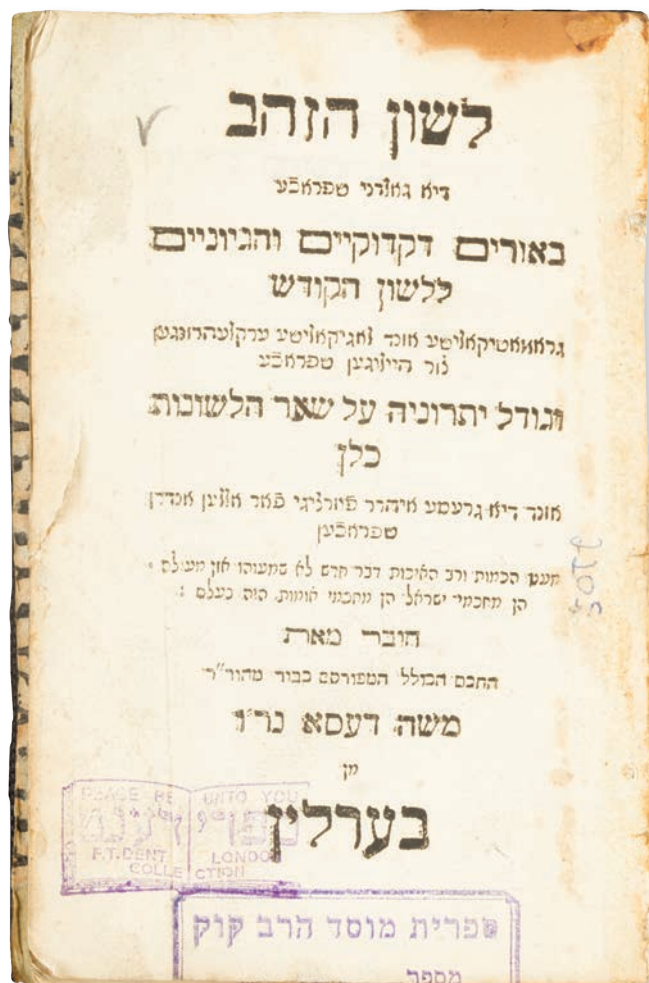 לשון הזהב
דיא גאלדני שפראכע
באורים דקדוקיים והגיוניים
ללשון הקודש
גראממאטיקאלישע אונד לאגיקאלישע ערקלעהרונגען
צור הייליגען שפראכע
וגודל יתרוניה על שאר הלשונות
כלן
אונד דיא גרעסע איהרר פירציגי פאר אללען אנדרן
שפראכען
מעט הכמות ורב האיכות דבר חדש לא שמעוהו אזן מעולם •
הן מחכמי ישראל הן מחכמי אומות היה כעלם :
חובר מאת
החכם הכולל המפורסם כבוד מהור"ר
משה דעסא נר"ו
מן
בערלין
PEACE BE UNTO YOU
F.T.DENT LONDON
COLLECTION
ספרית מוסד הרב קוק
מספר